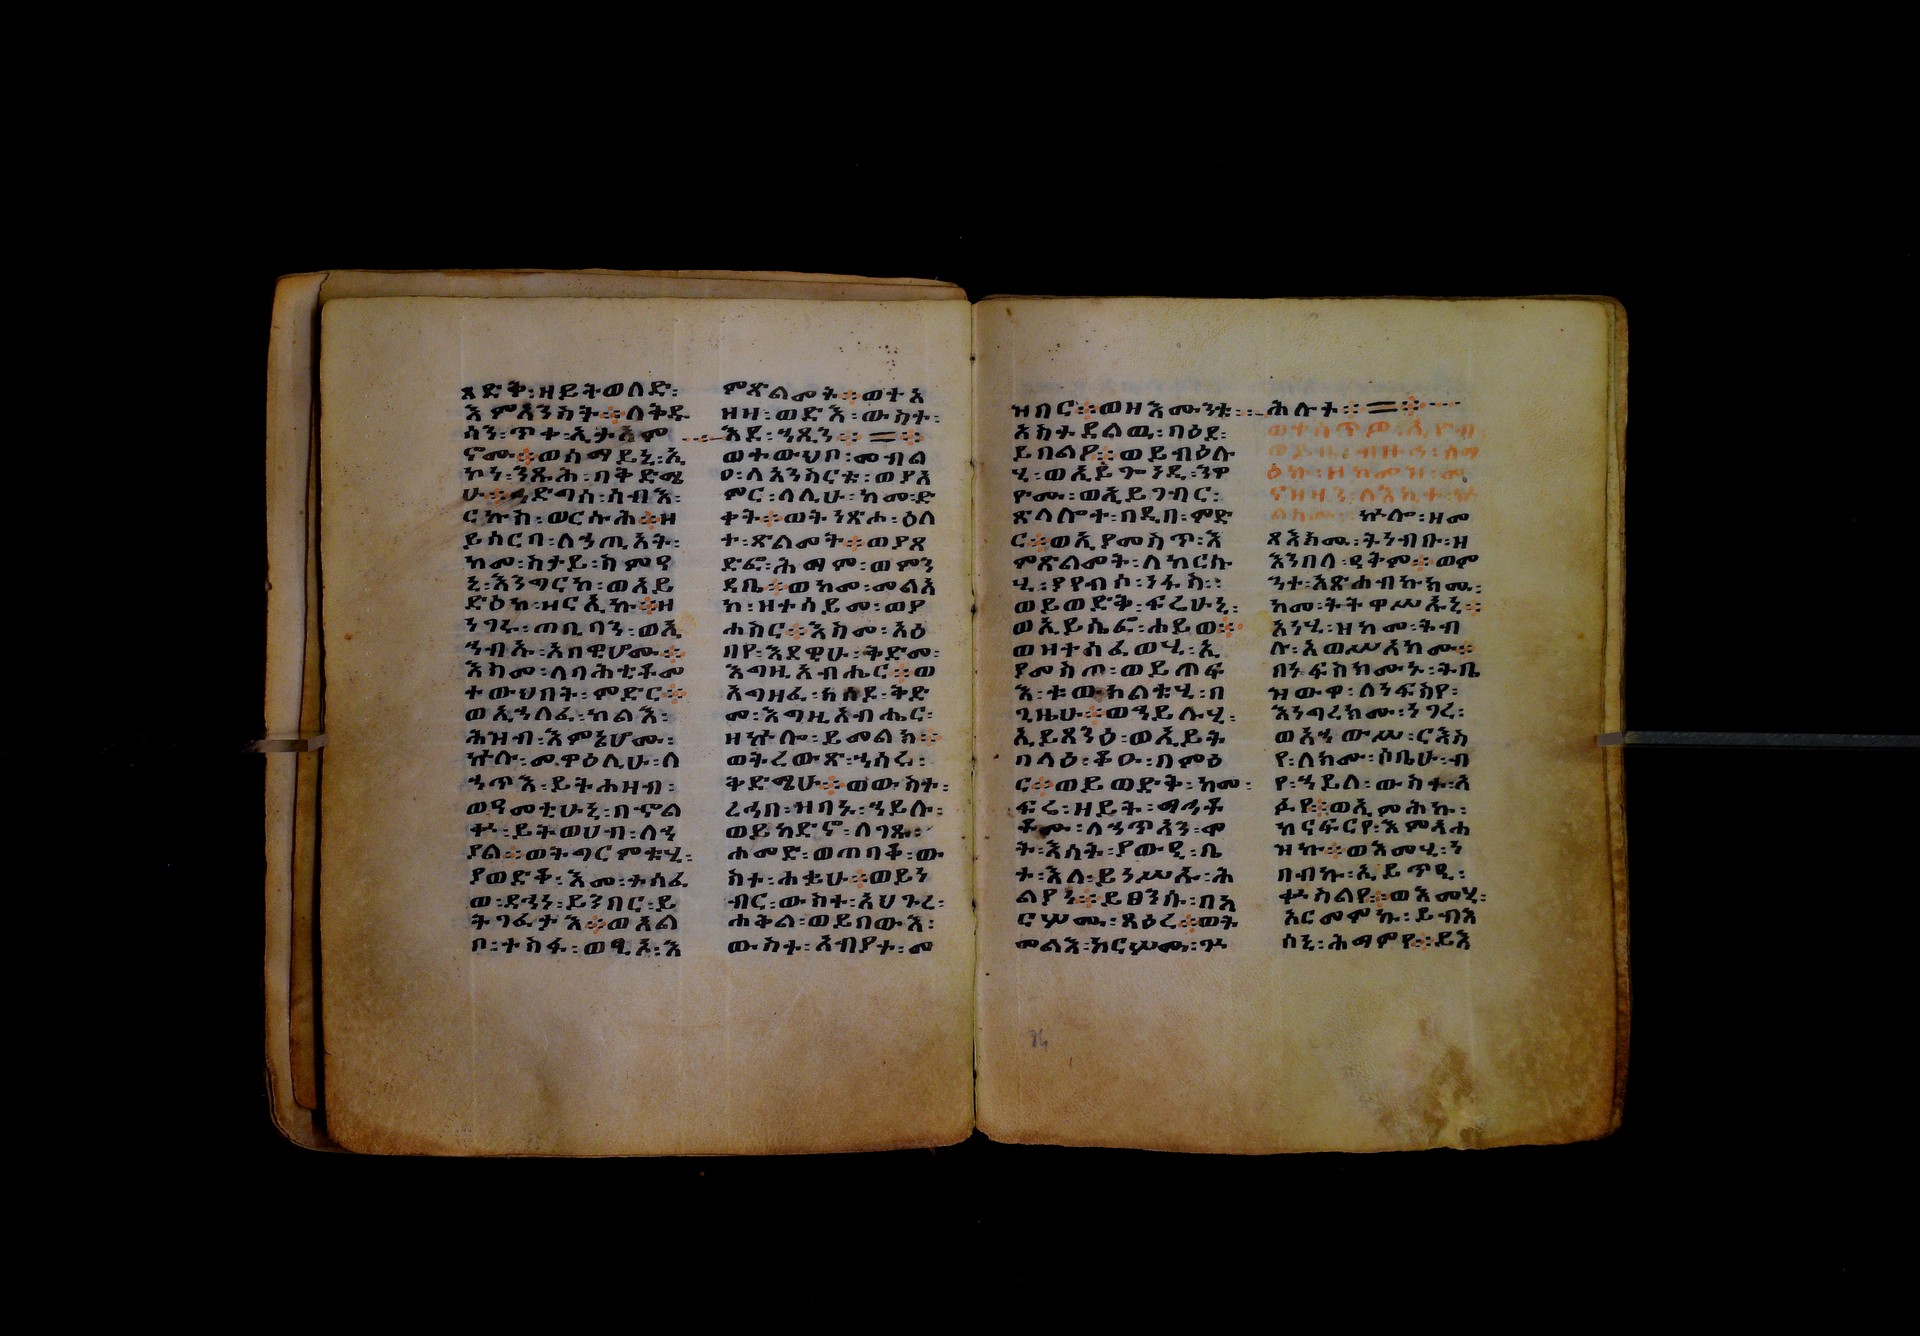 ጻድቅ፡ዘይትወለድ፡
እምአንስት፨ለቅዱ
ሳን፡ጥቀ፡ኢታአም
ኖሙ፨ወሰማይኒ፡ኢ
ኮነ፡ንጹሕ፡በቅድሜ
ሁ፨ኃድግሰ፡ሰብእ፡
ርኩስ፡ወርሱሕ፨ዘ
ይሰርባ፡ለኃጢአት፡
ከመ፡ስታይ፡ስምዓ
ኒ፡እንግርከ፡ወእይ
ድዕከ፡ዘርኢኩ፨ዘ
ነገሩ፡ጠቢባን፡ወኢ
ኀብኡ፡አበዊሆሙ፨
እስመ፡ለባሕቲቶሙ
ተውህበት፡ምድር፨
ወኢኀለፈ፡ከልእ፡
ሕዝብ፡እምኔሆሙ፡
ኵሎ፡መዋዕሊሁ፡ለ
ኃጥእ፡ይትሐዘብ፡
ወዓመቲሁኒ፡በኍል
ቍ፡ይትወሀብ፡ለኀ
ያል፨ወትግርምቱሂ፡
ያወድቆ፡እመ፡ተሰፈ
ወ፡ዳኃነ፡ይነብር፡ይ
ትገፈታእ፨ወአል
ቦ፡ተስፋ፡ወፂኦ፡እ
ምጽልመት፨ወተአ
ዘዘ፡ወድእ፡ውስተ፡
እደ፡ኀጺን፨
ወተውህቦ፡መብል
ዐ፡ለአንስርቱ፡ወያአ
ምር፡ለሊሁ፡ከመ፡ድ
ቀት፨ወትንጽሐ፡ዕለ
ተ፡ጽልመት፨ወያጸ
ድፎ፡ሕማም፡ወምን
ዳቤ፨ወከመ፡መልአ
ከ፡ዘተሰይመ፡ወያ
ሐስር፨እስመ፡አዕ
በየ፡እደዊሁ፡ቅድመ፡
እግዚአብሔር፨ወ
አግዘፈ፡ክሳደ፡ቅድ
መ፡እግዚአብሔር፡
ዘኵሎ፡ይመልክ፨
ወትረውጽ፡ኀሳሩ፡
ቅድሜሁ፨ወውስተ፡
ረኃበ፡ዝባኑ፡ኀይሉ፡
ወይከድኖ፡ለገጹ፡
ሐመድ፡ወጠባቆ፡ው
ስተ፡ሐቌሁ፨ወይነ
ብር፡ውስተ፡አህጉረ፡
ሐቅል፡ወይበውእ፡
ውስተ፡አብያተ፡መ
ዝብር፨ወዘእሙንቱ፡
አስተደለዉ፡ባዕደ፡
ይበልዖ፨ወይብዕሉ
ሂ፡ወኢይጐነዲ፡ንዋ
ዮሙ፡ወኢይገብር፡
ጽላሎተ፡በዲበ፡ምድ
ር፨ወኢያመስጥ፡እ
ምጽልመት፡ለከርሱ
ሂ፡ያየብሶ፡ነፋስ፡
ወይወድቅ፡ፍሬሁኒ፡
ወኢይሴፎ፡ሐይወ፨
ወዘተሰፈወሂ፡ኢ
ያመስጦ፡ወይጠፍ
እ፡ቱውስልቱሂ፡በ
ጊዜሁ፨ወኀይሉሂ፡
ኢይጸንዕ፡ወኢይት
ባላዕ፡ቆዑ፡በምዕ
ር፨ወይወድቅ፡ከመ፡
ፍሬ፡ዘይት፡ማኅቶ
ቶሙ፡ለኀጥአን፡ሞ
ት፡እሳት፡ያውዒ፡ቤ
ተ፡እለ፡ይነሥኡ፡ሕ
ልያነ፨ይፀንሱ፡በአ
ርሦሙ፡ጻዕረ፨ወት
መልእ፡ከርሦሙ፡ጕ
ሕሉት፨
ወተሰጥዎ፡ኢዮብ
ወይቤ፡ብዙኀ፡ሰማ
ዕኩ፡ዘከመዝ፡መ
ናዝዚን፡ለእኪት፡ኵ
ልክሙ፡ኵሎ፡ዘመ
ጻእክሙ፡ትነብቡ፡ዘ
እንበለ፡ዳቅም፨ወም
ንተ፡አጽሐብኩክሙ፡
ከመ፡ትትዋሥኡኒ፨
አነሂ፡ዘከመ፡ትብ
ሉ፡እወሥአክሙ፨
በነፍስክሙኑ፡ትቤ
ዝውዋ፡ለነፍስየ፡
እንግረክሙ፡ነገረ፡
ወእኀውሥ፡ርእስ
የ፡ለክሙ፡ሶቤሁ፡ብ
የ፡ኀይለ፡ውስተ፡አ
ፉየ፨ወኢምሕኩ፡
ከናፍርየ፡እምላሐ
ዝኩ፨ወእመሂ፡ነ
በብኩ፡ኢይጥዒ፡
ቍስልየ፨ወእመሂ፡
አርመምኩ፡ይብእ
ሰኒ፡ሕማምየ፨ይእ